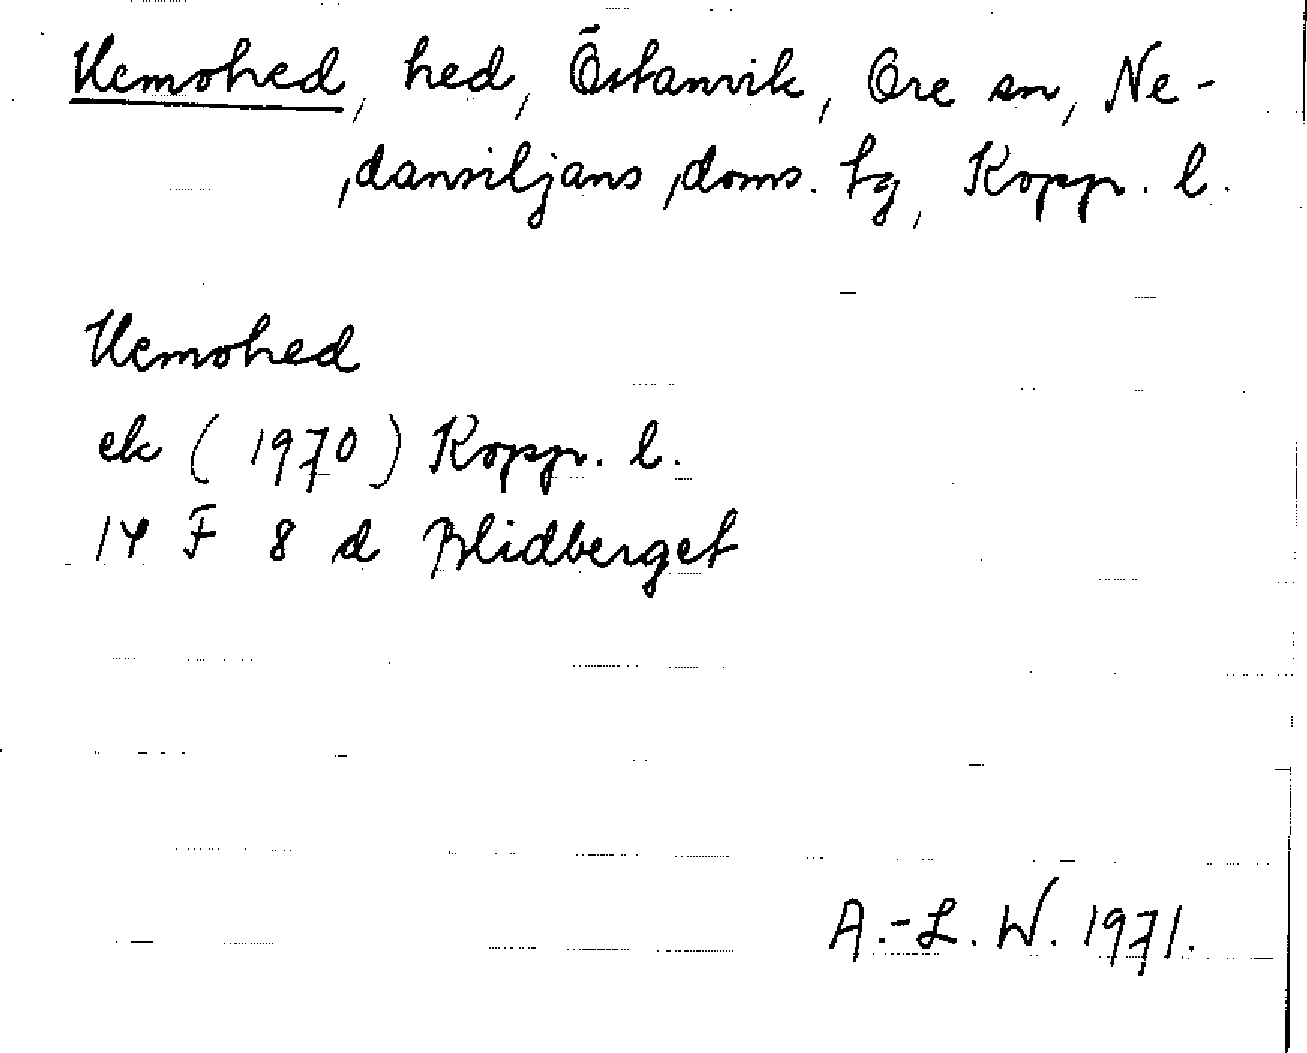 Uemohed, hed, Östanvik, Ore sn, Ne-
dansiljans doms. tg, Kopp. l.
Uemohed
ek (1970) Kopp. l.
14 F 8 d Blidberget
A.-L. W. 1971.